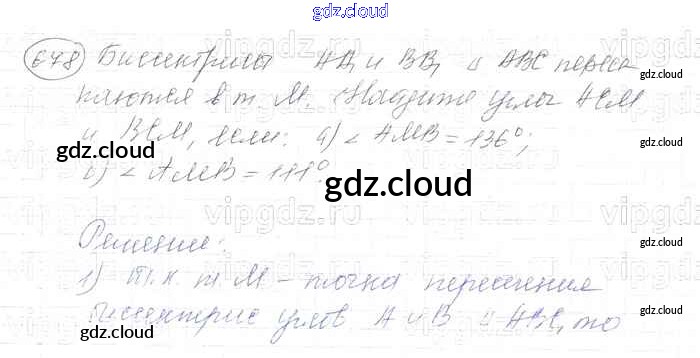 gdz.cloud
678 Биссектрисы AA₁ и BB₁ △ ABC пересе-
gdz.cloud
каются в т. M. Найдите углы ACM
и BCM, если: а) ∠ AMB = 136°;
gdz.cloud
gdz.cloud
б) ∠ AMB = 111°.
gdz.cloud
vipgdz.ru
Решение:
gdz.cloud
1) т.к. т. M – точка пересечения
gdz.cloud
биссектрис углов A и B △ ABC, то
gdz.cloud